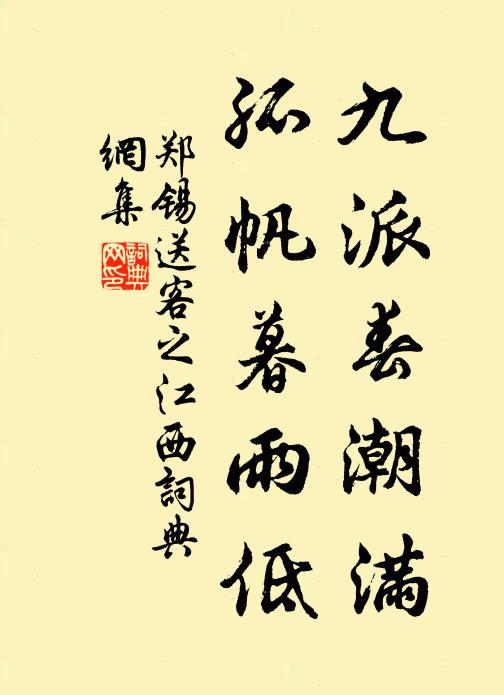 九派春潮满
孤帆暮雨低
郑锡送客之江西词典
網集
詞典网印